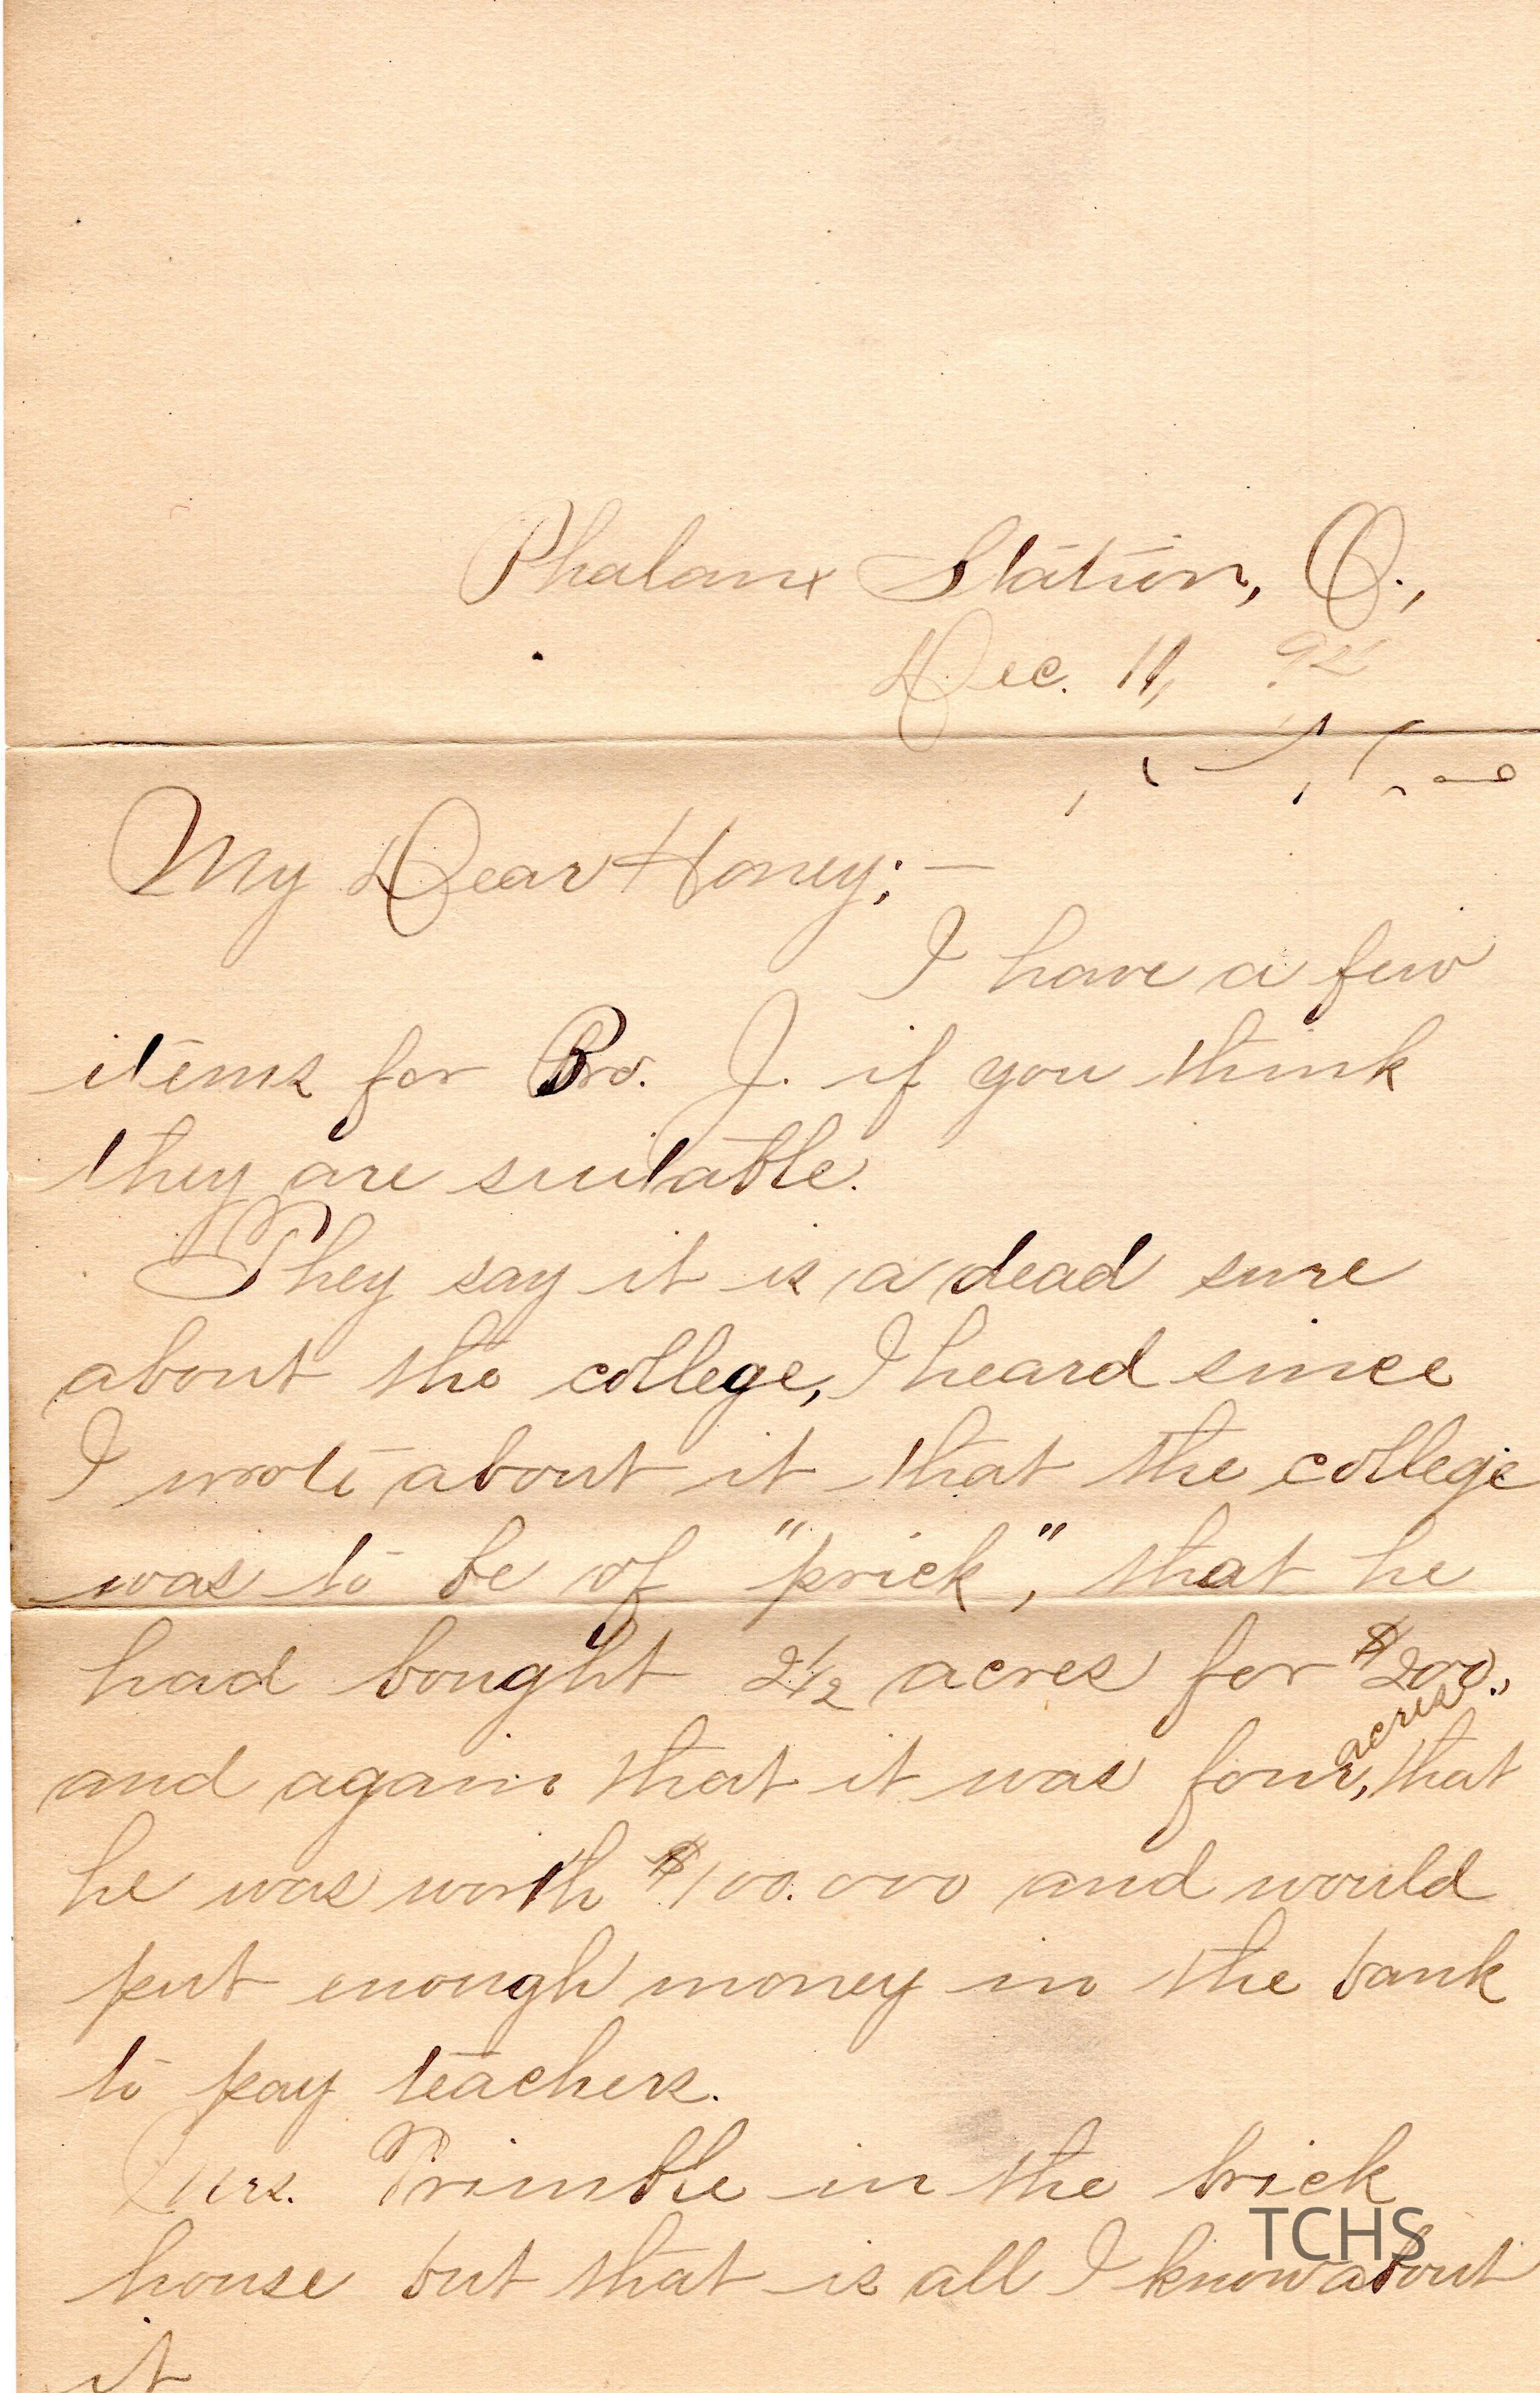 Phalanx Station, O.,
Dec. 11, 92
My Dear Honey; —
I have a few
items for Bro. J. if you think
they are suitable.
They say it is a dead sure
about the college, I heard since
I wrote about it that the college
was to be of "prick", that he
had bought 2 1/2 acres for $200.,
and again that it was four acres, that
he was worth $100.000 and would
put enough money in the bank
to pay teachers.
Mrs. Trimble in the brick
house but that is all I know about
it
TCHS